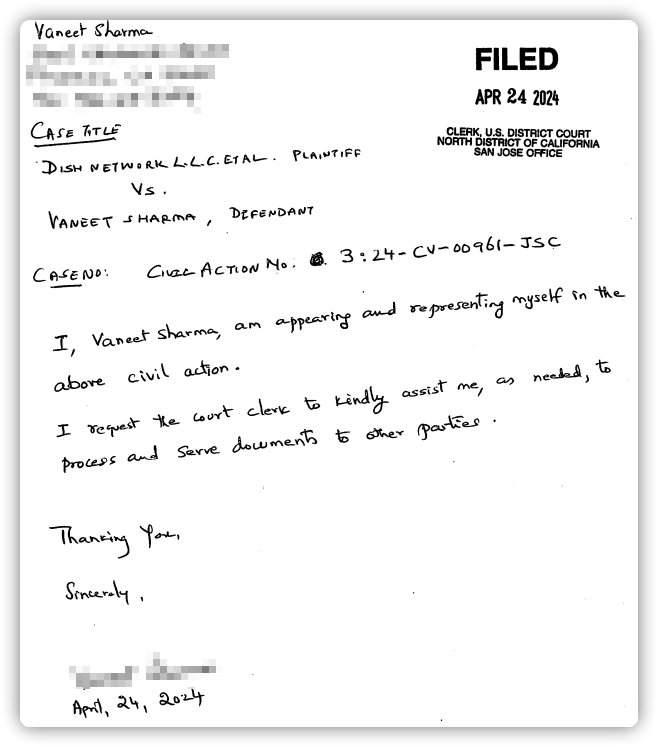 Vaneet Sharma
FILED
APR 24 2024
CLERK, U.S. DISTRICT COURT
NORTH DISTRICT OF CALIFORNIA
SAN JOSE OFFICE
CASE TITLE
DISH NETWORK L.L.C. ETAL. PLAINTIFF
VS.
VANEET SHARMA, DEFENDANT
CASE NO: CIVIL ACTION NO: 3:24-CV-00961-JSC
I, Vaneet Sharma, am appearing and representing myself in the
above civil action.
I request the court clerk to kindly assist me, as needed, to
process and serve documents to other parties.
Thanking You,
Sincerely,
April, 24, 2024